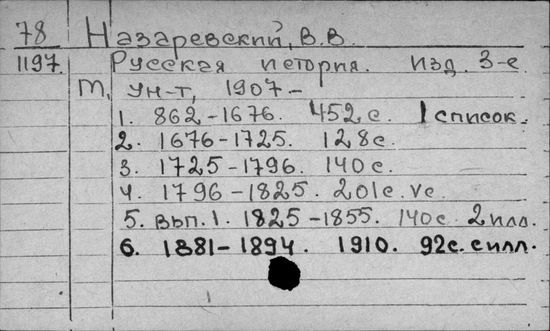 78 Назаревский, В.В.
1197. Русская история. Изд. 3-е
М, Ун-т, 1907-
1. 862-1676. 452с. 1 список.
2. 1676-1725. 128с.
3. 1725-1796. 140с.
4. 1796-1825. 201с. Vс.
5. Вып. 1. 1825-1855. 140с. 2 илл.
6. 1881-1894. 1910. 92с. с илл.